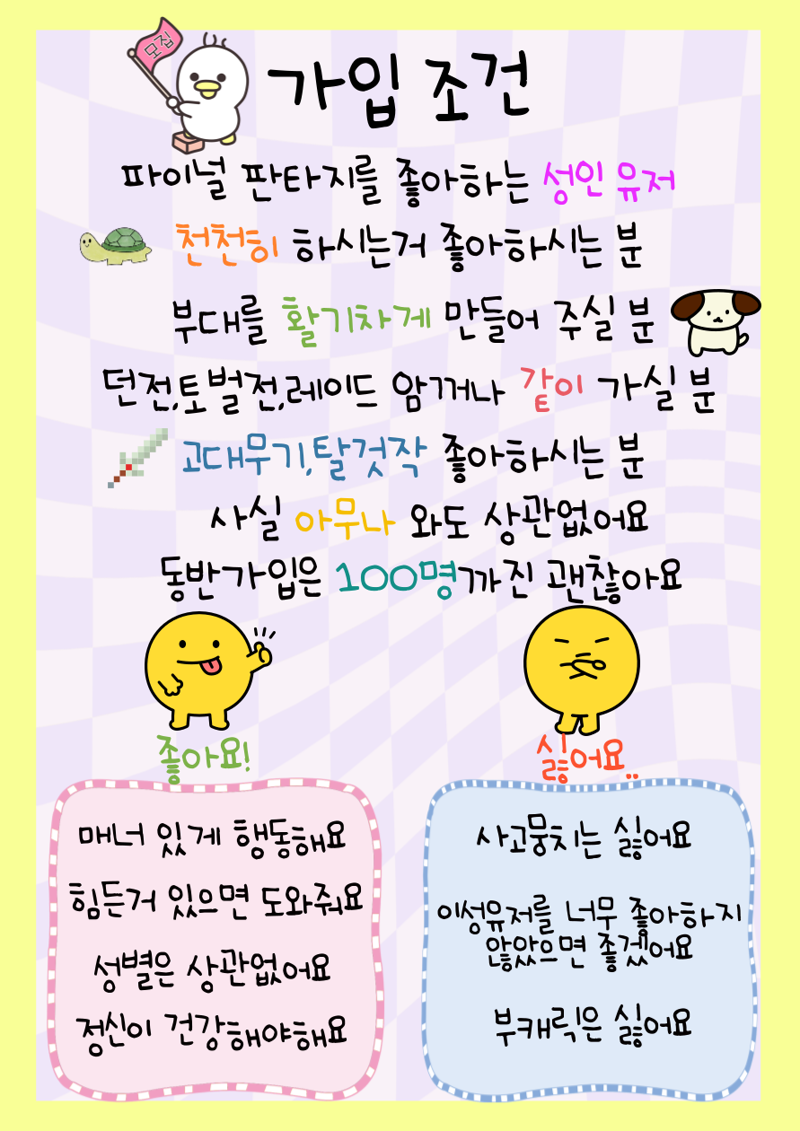 모집
가입 조건
파이널 판타지를 좋아하는 성인 유저
천천히 하시는거 좋아하시는 분
부대를 활기차게 만들어 주실 분
던전,토벌전,레이드 암꺼나 같이 가실 분
고대무기,탈것작 좋아하시는 분
사실 아무나 와도 상관없어요
동반가입은 100명까진 괜찮아요
좋아요!
매너 있게 행동해요
힘든거 있으면 도와줘요
성별은 상관없어요
정신이 건강해야해요
싫어요..
사고뭉치는 싫어요
이성유저를 너무 좋아하지
않았으면 좋겠어요
부캐릭은 싫어요